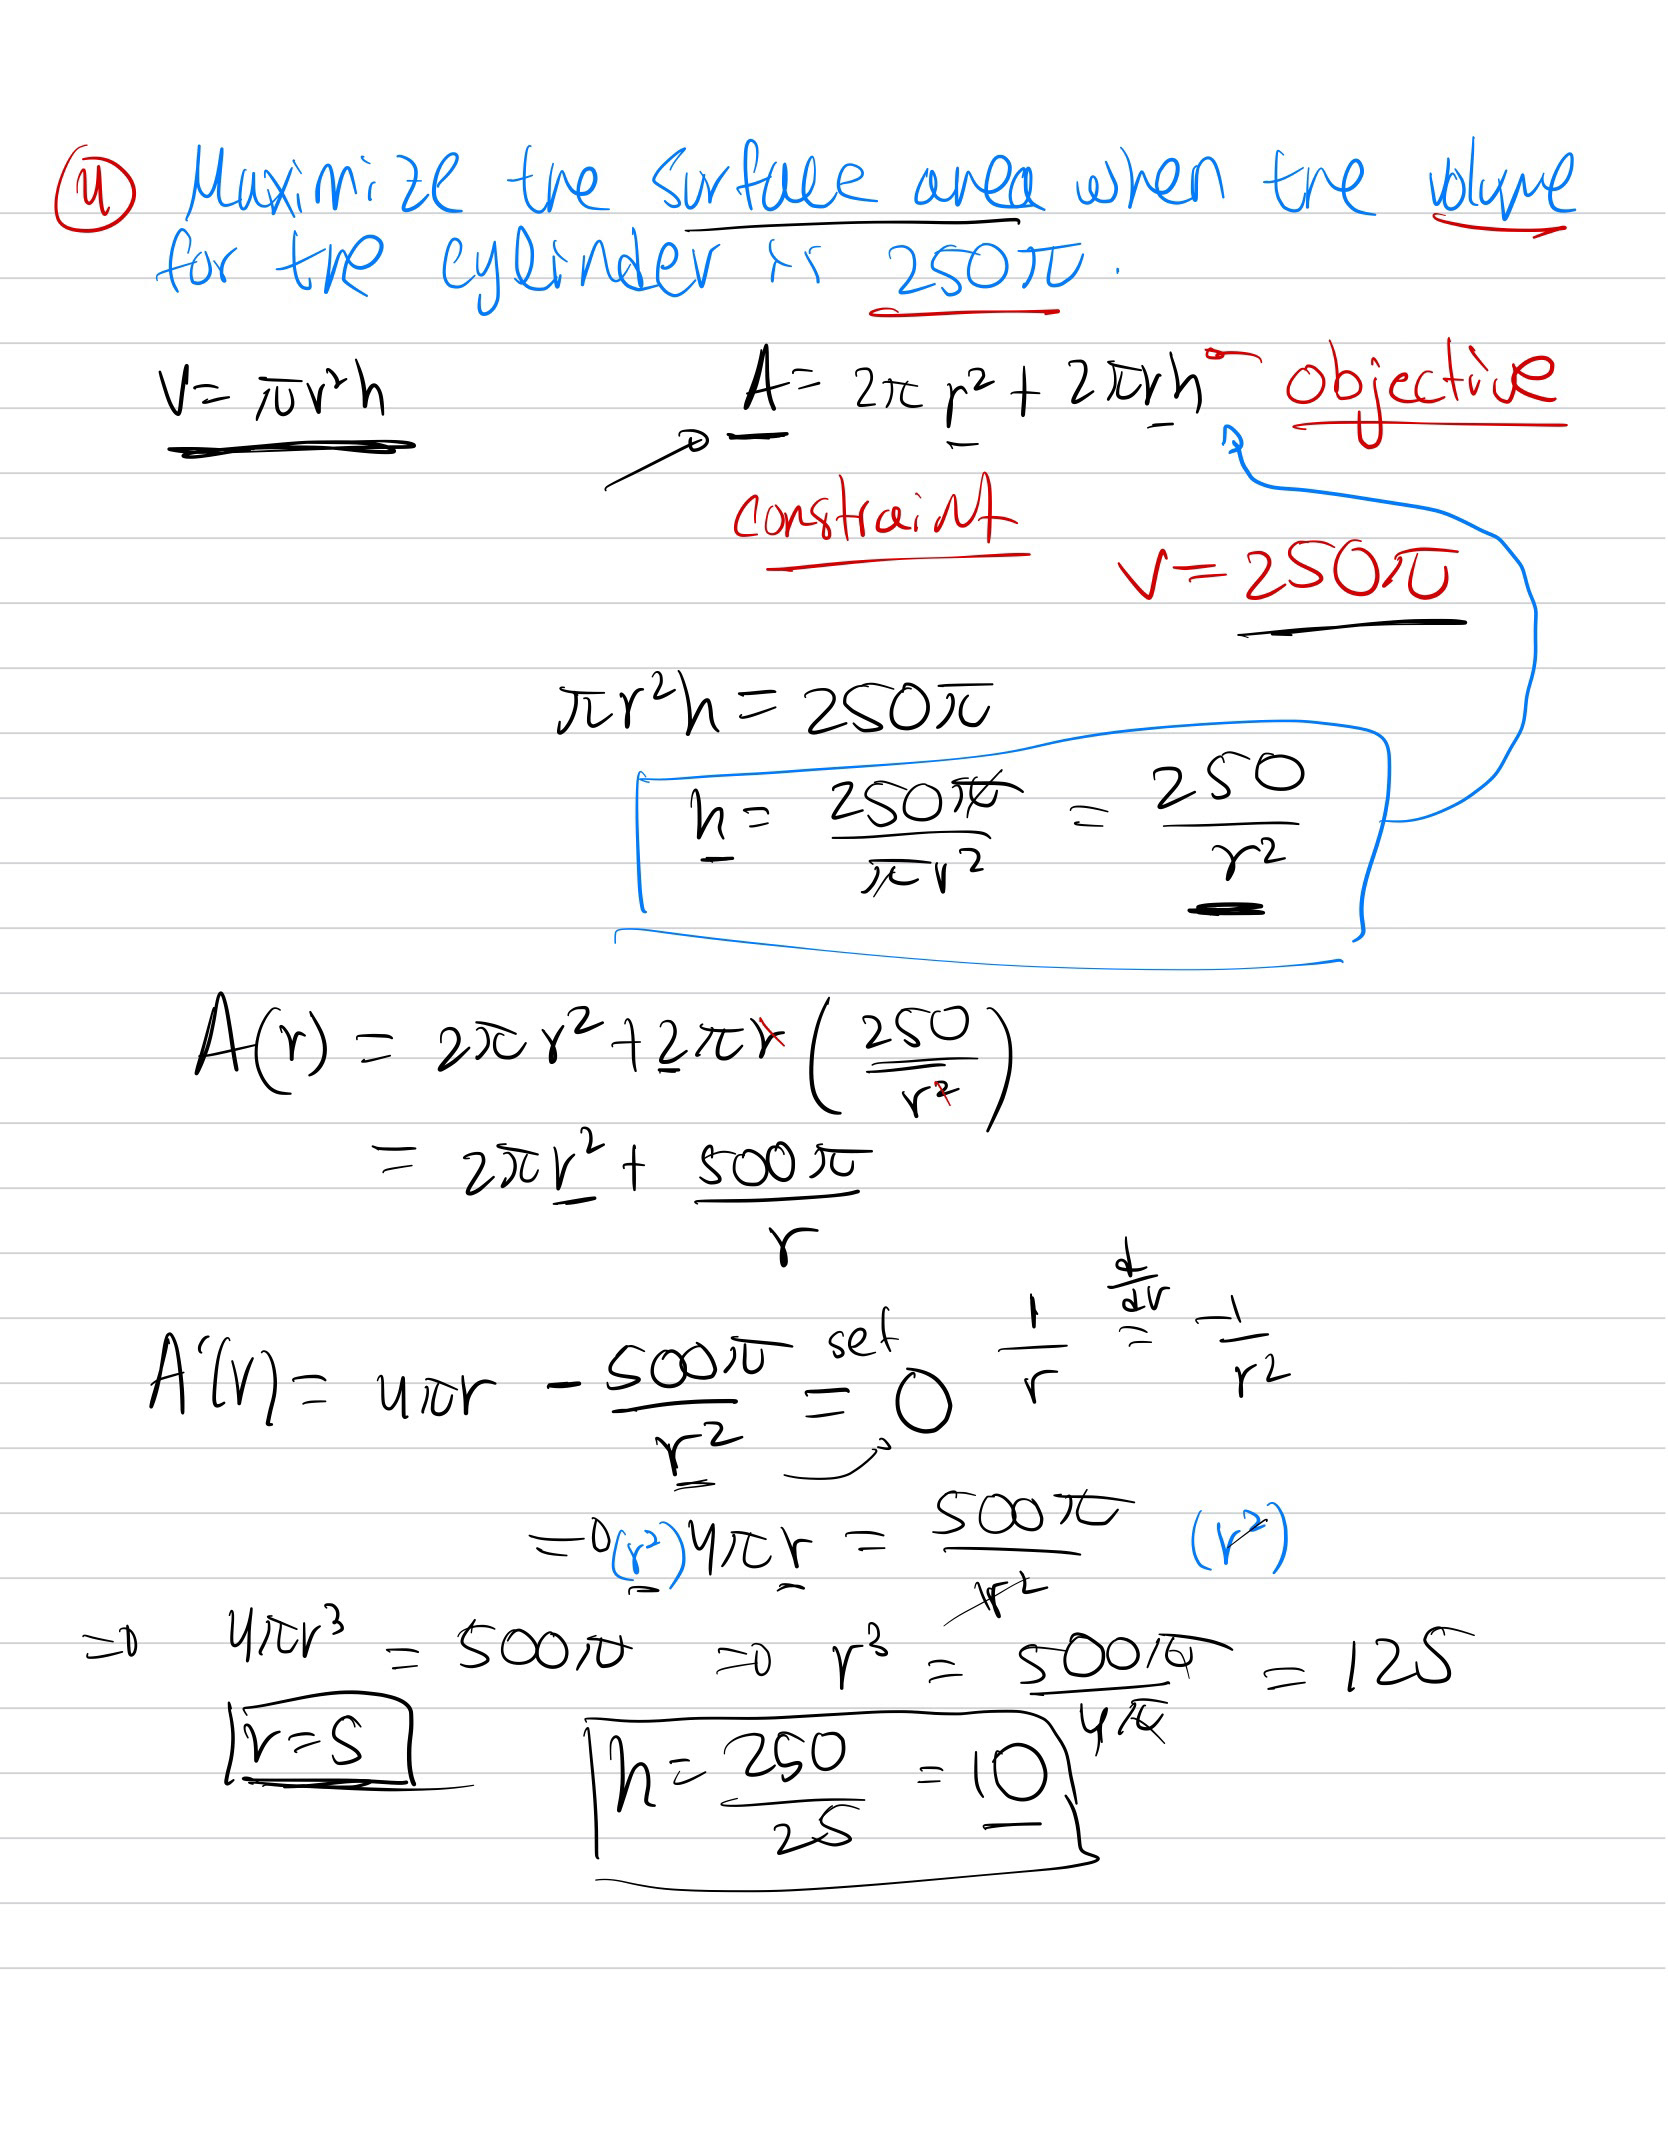 ④ Maximize the surface area when the volume
for the cylinder is 250π.
V = πr²h A = 2πr² + 2πrh objective
constraint
V = 250π
πr²h = 250π
h = 250π/πr² = 250/r²
A(r) = 2πr² + 2πr (250/r²)
= 2πr² + 500π/r
A'(r) = 4πr - 500π/r² set = 0 1/r d/dr = -1/r²
⇒ (r²) 4πr = 500π/r² (r²)
⇒ 4πr³ = 500π ⇒ r³ = 500π/4π = 125
r = 5 h = 250/25 = 10